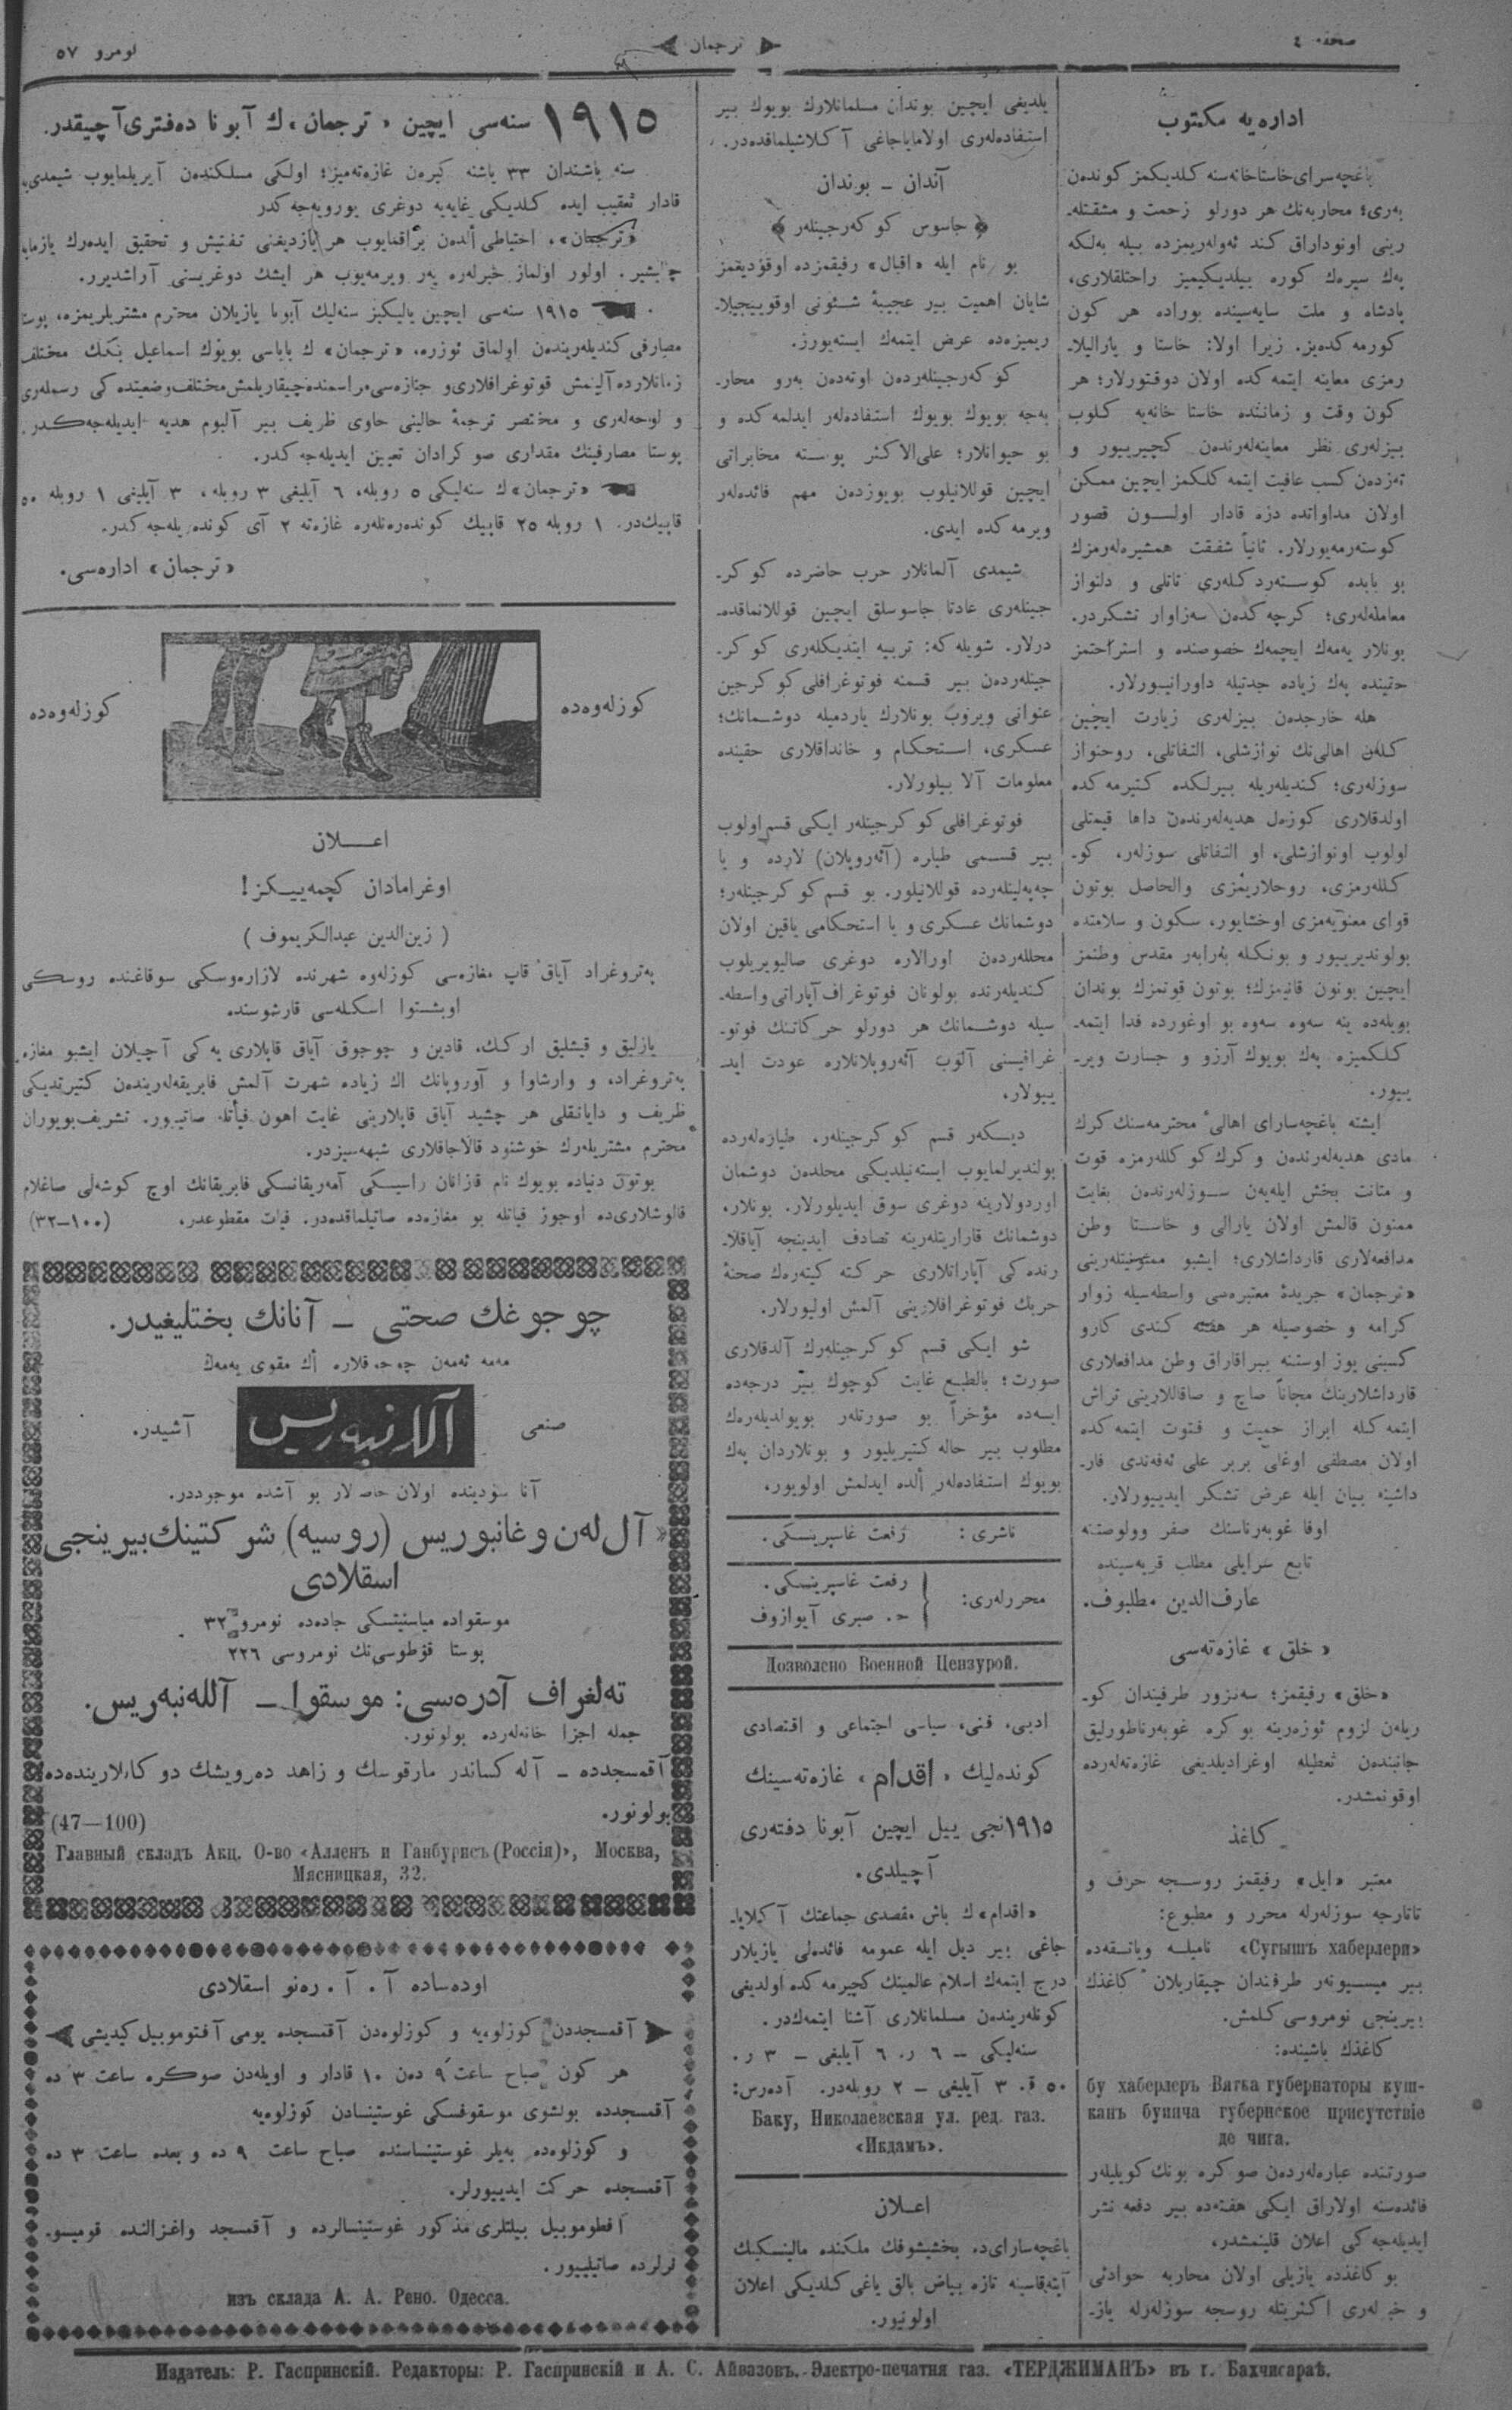 صحفه ٤
ترجمان
نومرو ٥٧
اداره‌یه مكتوب
باغچه‌سرای خاستاخانه‌سنه كلدیكمز كوندن
به‌ری؛ محاربه‌نك هر دورلو زحمت و مشقتله‌ـ
رینی اونوداراق كند ئه‌وله‌ریمزده بیله بهلكه
پك سیرهك كوره بیلدیكیمیز راحتلقلاری،
پادشاه و ملت سایه‌سینده بوراده هر كون
كورمه‌كده‌یز. زیرا اولا: خاستا و یارالیلاـ
رمزی معاینه ایتمه‌كده اولان دوقتورلار؛ هر
كون وقت و زماننده خاستا خانه‌یه كلوب
بیزله‌ری نظر معاینه‌له‌رندن كچیرییور و
ته‌زدن كسب عافیت ایتمه‌كلكمز ایچین ممكن
اولان مداواتده ذره قادار اولسون قصور
كوسته‌رمه‌یورلار. ثانیاً شفقت همشیره‌له‌رمزك
بو بابده كوسته‌ردكله‌ری تاتلی و دلنواز
معامله‌له‌ری؛ كرچه‌كدن سه‌زاوار تشكردر.
بونلار یه‌مه‌ك ایچمه‌ك خصوصنده و استراحتمز
حقینده پك زیاده جدتیله داورانیبورلار.
هله خارجدن بیزله‌ری زیارت ایچین
كلن اهالی‌نك نوازشلی، التفاتلی، روحنواز
سوزله‌ری؛ كندیله‌ریله بیرلكده كتیرمه‌كده
اولدقلاری كوزه‌ل هدیه‌له‌رندن داها قیمتلی
اولوب اونوازشلی، او التفاتلی سوزلر، كوـ
كللرمزی، روحلاریمزی والحاصل بوتون
قوای معنویه‌مزی اوخشایور، سكون و سلامتده
بولوندیرییور و بونكله به‌رابه‌ر مقدس وطنمز
ایچین بوتون قانیمزك؛ بوتون قوتمزك بوندان
بویله‌ده ینه سه‌وه سه‌وه بو اوغورده فدا ایتمه‌ـ
كلكمیزه پك بویوك آرزو و جسارت ویرـ
ییور.
ایشته باغچه‌سارای اهالیٔ محترمه‌سنك كرك
مادی هدیه‌له‌رندن و كرك كوكللرمزه قوت
و متانت بخش ایله‌یه‌ن سوزله‌رندن بغایت
ممنون قالمش اولان یارالی و خاستا وطن
مدافعه‌لاری قارداشلاری؛ ایشبو ممنونیتله‌رینی
«ترجمان» جریدهٔ معتبره‌سی واسطه‌سیله زوار
كرامه و خصوصیله هر هفته كندی كارو
كسبنی یوز اوستنه بیراقاراق وطن مدافعلاری
قارداشلارینك مجاناً صاچ و صاقاللارینی تراش
ایتمه‌كله ابراز حمیت و فتوت ایتمه‌كده
اولان مصطفی اوغلی بربر علی ئه‌فه‌ندی قارـ
داشینه بیان ایله عرض تشكر ایدییورلار.
اوفا غوبه‌رناسنك صفر وولوصتنه
تابع سرایلی مطلب قریه‌سینده
عارف‌الدین مطلبوف.
« خلق » غازه‌ته‌سی
«خلق» رفیقمز؛ سه‌نزور طرفیندان كوـ
ریلن لزوم ئوزه‌رینه بو كره غوبه‌رناطورلیق
جانبندن تعطیله اوغرادیلدیغی غازه‌ته‌له‌رده
اوقونمشدر.
كاغذ
معتبر «ایل» رفیقمز روسجه حرف و
تاتارجه سوزله‌رله محرر و مطبوع:
«Сугышъ хаберлери» نامیله ویاتقه‌ده
بیر میسیونه‌ر طرفندان چیقاریلان كاغذك
بیرینجی نومروسی كلمش.
كاغذك باشینده:
бу хаберлеръ Вятка губернаторы куш-
канъ буинча губернское присутствіе
де чига.
صورتنده عباره‌له‌ردن صوكره بونك كویلیلر
فائده‌سنه اولاراق ایكی هفته‌ده بیر دفعه نشر
ایدیله‌جه‌كی اعلان قلینمشدر.
بو كاغذده یازیلی اولان محاربه حوادثی
و خبرله‌ری اكثریتله روسجه سوزله‌رله یازـ
یلدیغی ایچین بوندان مسلمانلارك بویوك بیر
استفاده‌له‌ری اولامایاجاغی آكلاشیلماقده‌در.
آندان ـ بوندان
﴿ جاسوس كوكه‌رجینلر ﴾
بو نام ایله «اقبال» رفیقمزده اوقودیغمز
شایان اهمیت بیر عجیبهٔ شئونی اوقوییجیلاـ
ریمیزه‌ده عرض ایتمه‌ك ایسته‌یورز.
كوكه‌رجینله‌ردن اوته‌دن به‌رو محارـ
به‌جه بویوك بویوك استفاده‌لر ایدلمه‌كده و
بو حیوانلار؛ علی‌الاكثر پوسته مخابراتی
ایچین قوللانیلوب بویوزدن مهم فائده‌لر
ویرمه‌كده ایدی.
شیمدی آلمانلار حرب حاضرده كوكرـ
جینله‌ری عادتا جاسوسلق ایچین قوللانماقده‌ـ
درلار. شویله‌كه: تربیه ایتدیكله‌ری كوكرـ
جینله‌ردن بیر قسمنه فوتوغرافلی كوكرجین
عنوانی ویروب بونلارك یاردمیله دوشمانك؛
عسكری، استحكام و خانداقلاری حقینده
معلومات آلا بیلورلار.
فوتوغرافلی كوكرجینلر ایكی قسم اولوب
بیر قسمی طیاره (آئه‌روپلان) لارده و یا
جه‌په‌لینله‌رده قوللانیلور. بو قسم كوكرجینلر؛
دوشمانك عسكری و یا استحكامی یاقین اولان
محلله‌ردن اورالاره دوغری صالیویریلوب
كندیله‌رنده بولونان فوتوغراف آپاراتی واسطه‌ـ
سیله دوشمانك هر دورلو حركاتنك فوتوـ
غرافیسنی آلوب آئه‌روپلانلاره عودت ایدـ
ییولار.
دیكه‌ر قسم كوكرجینلر، طیاره‌له‌رده
بولندیرلمایوب ایسته‌نیلدیكی محلدن دوشمان
اوردولارینه دوغری سوق ایدیلورلار. بونلار،
دوشمانك قارارینله‌رینه تصادف ایدینجه آیاقلاـ
رنده‌كی آپاراتلاری حركته كیته‌رك صحنهٔ
حربك فوتوغرافلارینی آلمش اولیورلار.
شو ایكی قسم كوكرجینله‌رك آلدقلاری
صورت؛ بالطبع غایت كوچوك بیر درجه‌ده
ایسه‌ده مؤخراً بو صورتلر بویولدیله‌رك
مطلوب بیر حاله كتیریلیور و بونلاردان پك
بویوك استفاده‌لر ألده ایدلمش اولویور.
ناشری: رفعت غاسپرینسكی.
محررله‌ری: رفعت غاسپرینسكی.
ح. صبری آیوازوف
Дозволено Военной Цензурой.
ادبی، فنی، سیاسی اجتماعی و اقتصادی
كونده‌لیك «اقدام» غازه‌ته‌سینك
١٩١٥نجی ییل ایچین آبونا دفته‌ری
آچیلدی.
«اقدام»ك باش مقصدی جماعتك آكلایاـ
جاغی بیر دیل ایله عمومه فائده‌لی یازیلار
درج ایتمه‌ك اسلام عالمینك كچیرمه‌كده اولدیغی
كونله‌ریندن مسلمانلاری آشنا ایتمه‌كدر.
سنه‌لیكی – ٦ ر. ٦ آیلیغی – ٣ ر.
٥٠ ق. ٣ آیلیغی – ٢ روبله‌در. آده‌رس:
Баку, Николаевская ул. ред. газ.
«Икдамъ».
اعلان
باغچه‌سارای‌ده بخشیشوفك ملكنده مالینسكینك
آپته‌قاسینه تازه بیاض بالق یاغی كلدیكی اعلان
اولونیور.
١٩١٥ سنه‌سی ایچین «ترجمان»ك آبونا ده‌فتری آچیقدر.
سنه باشندان ٣٣ یاشنه كیرن غازه‌ته‌میز؛ اولكی مسلكندن آیریلمایوب شیمدی‌یه
قادار تعقیب ایده كلدیكی غایه‌یه دوغری یورویه‌جه‌كدر
«ترجمان»، احتیاطی ألدن براقمایوب هر یازدیغنی تفتیش و تحقیق ایده‌رك یازمایه
چالیشیر. اولور اولماز خبرله‌ره یه‌ر ویرمه‌یوب هر ایشك دوغریسنی آراشدیرر.
١٩١٥ سنه‌سی ایچین یالیكیز سنه‌لیك آبونا یازیلان محترم مشتریلریمزه، پوستا
مصارفی كندیله‌ریندن اولماق ئوزره، «ترجمان» ك باباسی بویوك اسماعیل بكك مختلف
زمانلارده آلینمش فوتوغرافلاری و جنازه‌سی مراسمنده چیقاریلمش مختلف وضعیتده‌كی رسمله‌ری
و لوحه‌له‌ری و مختصر ترجمهٔ حالینی حاوی ظریف بیر آلبوم هدیه ایدیله‌جه‌كدر.
پوستا مصارفینك مقداری صوكرادان تعیین ایدیله‌جه‌كدر.
«ترجمان»ك سنه‌لیكی ٥ روبله، ٦ آیلیغی ٣ روبله، ٣ آیلیغی ١ روبله ٥٠
قاپیك‌در. ١ روبله ٢٥ قاپیك كونده‌رنله‌ره غازه‌ته ٢ آی كونده‌ریله‌جه‌كدر.
«ترجمان» اداره‌سی.
كوزله‌وه‌ده
كوزله‌وه‌ده
اعلان
اوغرامادان كچمه‌ییكز!
( زین‌الدین عبدالكریموف )
په‌تروغراد آیاق قاپ مغازه‌سی كوزله‌وه شهرنده لازاره‌وسكی سوقاغنده روسكی
اوبشتوا اسكله‌سی قارشوسنده
یازلیق و قیشلیق ارككـ، قادین و چوجوق آیاق قاپلاری یه‌كی آچیلان ایشبو مغازه
په‌تروغراد، و وارشاوا و آوروپانك اك زیاده شهرت آلمش فابریقه‌له‌ریندن كتیرتدیكی
ظریف و دایانقلی هر چشید آیاق قاپلارینی غایت اهون فیأتله صاتییور. تشریف بویوران
محترم مشتریله‌رك خوشنود قالاجاقلاری شبهه‌سیزدر.
بوتون دنیاده بویوك نام قازانان راسیسكی آمه‌ریقانسكی فابریقانك اوچ كوشه‌لی صاغلام
قالوشلاری‌ده اوجوز فیاتله بو مغازه‌ده صاتیلماقده‌در. فیات مقطوعدر. (٣٢–١٠٠)
چوجوغك صحتی – آنانك بختلیغیدر.
مه‌مه ئه‌مه‌ن چوجوقلاره أك مقوی یه‌مه‌ك
صنعی آللانبه‌ریس آشیدر.
آنا سودینده اولان خاصه‌لار بو آشده موجوددر.
«آل‌لن و غانبوریس (روسیه) شركتینك بیرینجی
اسقلادی
موسقواده میاسنیتسكی جاده‌ده نومرو ٣٢
پوستا قوطوسی‌نك نومروسی ٢٢٦
ته‌لغراف آدره‌سی: موسقوا – آللـه‌نبه‌ریس.
جمله اجزا خانه‌له‌رده بولونور.
آقمسجدده – آله‌كساندر مارقوسك و زاهد ده‌رویشك دوكانلارینده‌ده
بولونور. (47—100)
Главный складъ Акц. О-во «Алленъ и Ганбурисъ (Россія)», Москва,
Мясницкая, 32.
اوده‌ساده آ. آ. ره‌نو اسقلادی
آقمسجددن كوزلوه‌یه و كوزلوه‌دن آقمسجده یومی آفتوموبیل كیدیشی
هر كون صباح ساعت ٩ دن ١٠ قادار و اویله‌دن صوكره ساعت ٣ ده
آقمسجدده بولشوی موسقوفسكی غوستینسادن كوزلوه‌یه
و كوزلوه‌ده به‌یلر غوستینساسنده صباح ساعت ٩ ده و بعده ساعت ٣ ده
آقمسجده حركت ایدییورلر.
آفطوموبیل بیلتلری مذكور غوستینسالرده و آقمسجد واغزالنده قومیسیوـ
نرلرده صاتیلییور.
изъ склада А. А. Рено. Одесса.
Издатель: Р. Гаспринскій. Редакторы: Р. Гаспринскій и А. С. Айвазовъ. Электро-печатня газ. «ТЕРДЖИМАНЪ» въ г. Бахчисараѣ.